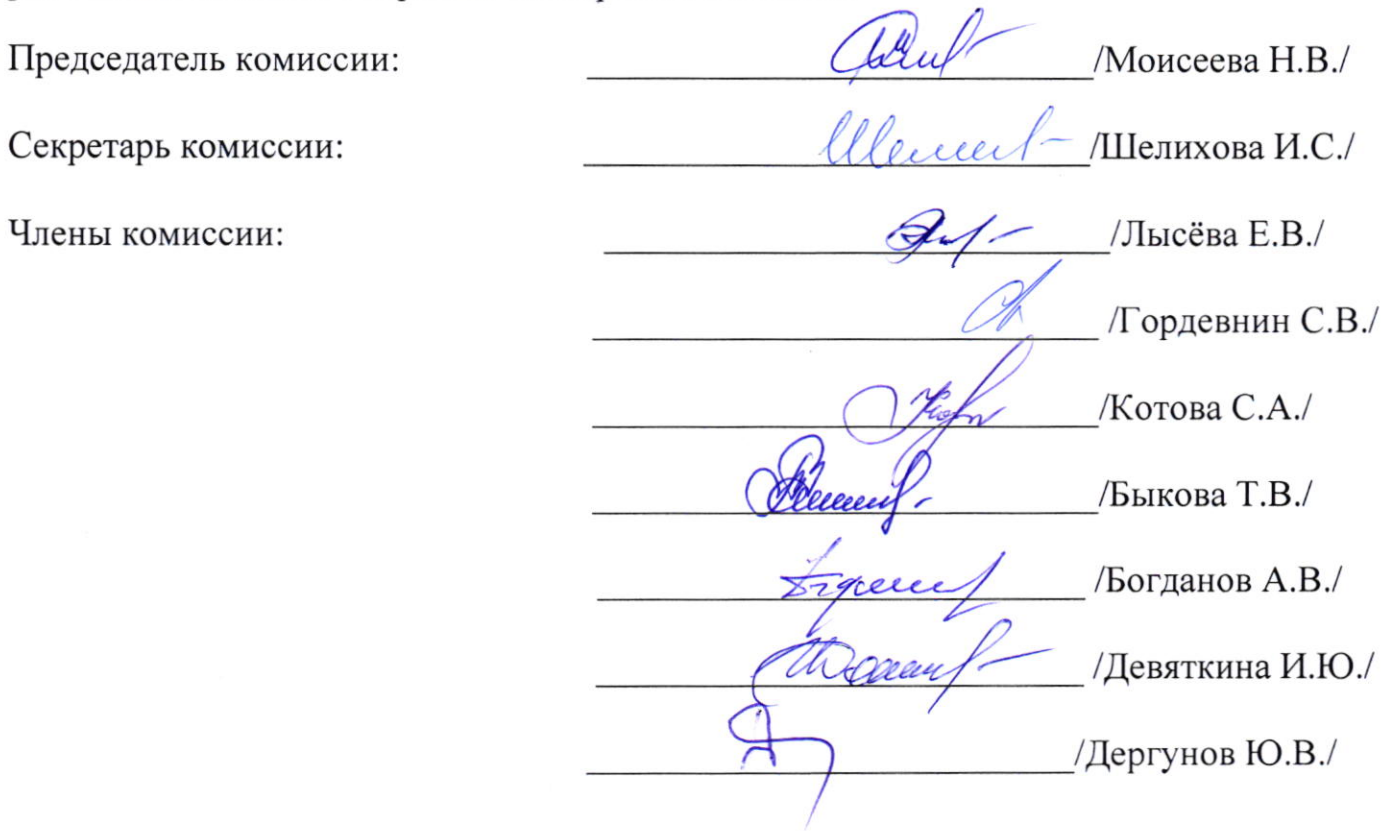 Председатель комиссии: /Моисеева Н.В./
Секретарь комиссии: /Шелихова И.С./
Члены комиссии: /Лысёва Е.В./
/Гордевнин С.В./
/Котова С.А./
/Быкова Т.В./
/Богданов А.В./
/Девяткина И.Ю./
/Дергунов Ю.В./